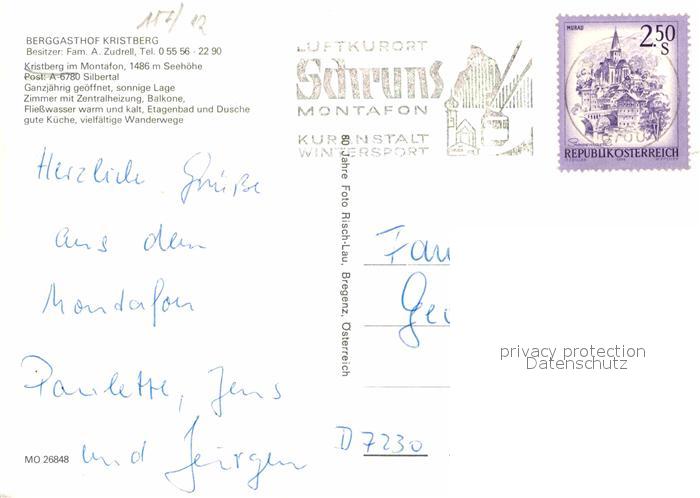 115/12
BERGGASTHOF KRISTBERG
Besitzer: Fam. A. Zudrell, Tel. 0 55 56 - 22 90
Kristberg im Montafon, 1486 m Seehöhe
Post: A-6780 Silbertal
Ganzjährig geöffnet, sonnige Lage
Zimmer mit Zentralheizung, Balkone,
Fließwasser warm und kalt, Etagenbad und Dusche
gute Küche, vielfältige Wanderwege
LUFTKURORT
Schruns
MONTAFON
KURANSTALT
WINTERSPORT
MURAU
2.50
S
REPUBLIK ÖSTERREICH
Herzliche Grüße
aus dem
Montafon
Paulette, Jens
und Jürgen
80 Jahre Foto Risch-Lau, Bregenz, Österreich
Fam
Geo
D 7230
MO 26848
privacy protection
Datenschutz